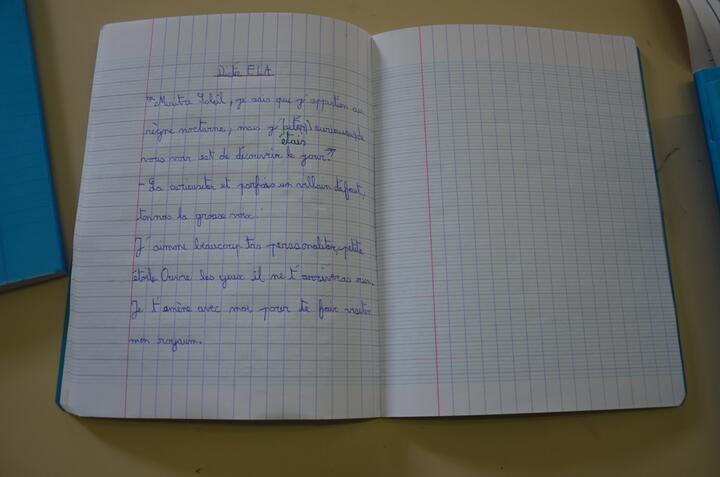 Dictée ELA
"Maitre Soleil, je sais que j'appartien au
règne nocturne, mais j' étais curieuse de
vous voir est de découvrir le jour."
- La curiusiter et parfois un villain défaut,
tonnas la grosse voix.
J'aimme beaucoup tas personaliter, petite
étoile Ouvre les yeux il ne t'arriveras rien.
Je t'emène avec moi pour te faire visiter
mon royaum.